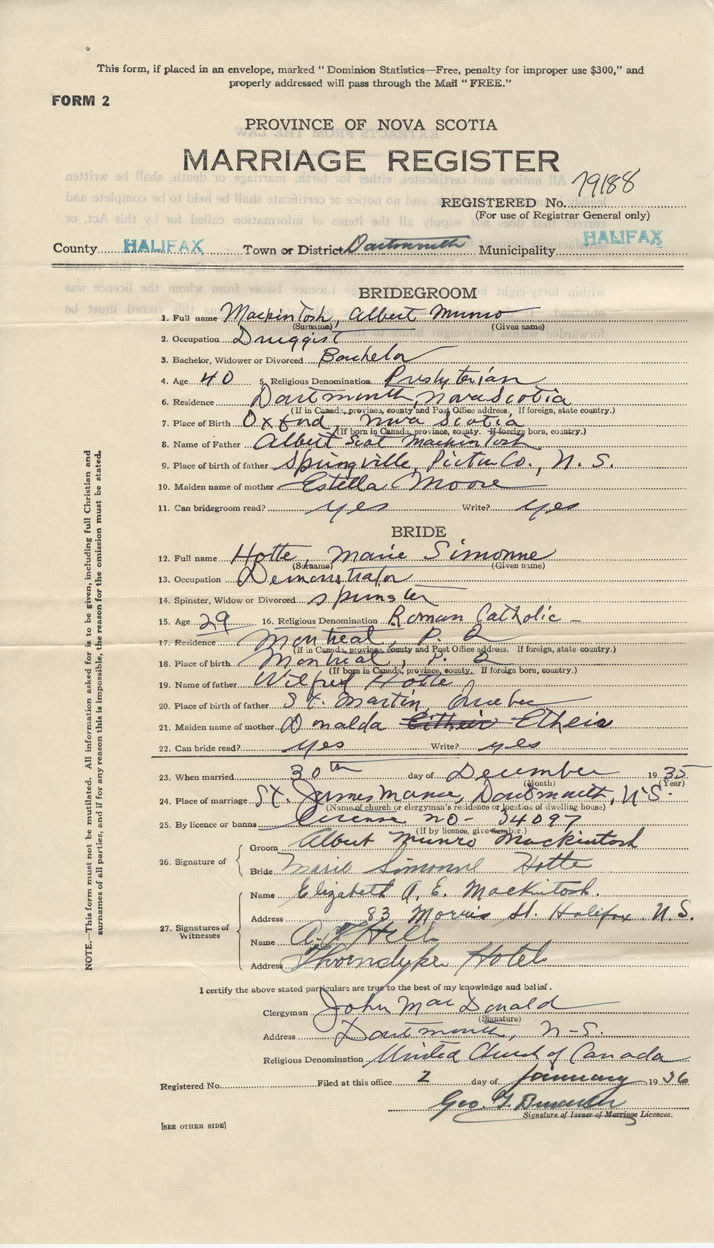 This form, if placed in an envelope, marked "Dominion Statistics—Free, penalty for improper use $300," and
properly addressed will pass through the Mail "FREE."
FORM 2
PROVINCE OF NOVA SCOTIA
MARRIAGE REGISTER
REGISTERED No. 79188
(For use of Registrar General only)
County HALIFAX Town or District Dartmouth Municipality HALIFAX
BRIDEGROOM
1. Full name Mackintosh, Albert Munro
(Surname) (Given name)
2. Occupation Druggist
3. Bachelor, Widower or Divorced Bachelor
4. Age 40 5. Religious Denomination Presbyterian
6. Residence Dartmouth, Nova Scotia
(If in Canada, province, county and Post Office address. If foreign, state country.)
7. Place of Birth Oxford, Nova Scotia
(If born in Canada, province, county. If foreign born, country.)
8. Name of Father Albert Scot Mackintosh
9. Place of birth of father Springville, Pictou Co., N. S.
10. Maiden name of mother Estella Moore
11. Can bridegroom read? yes Write? yes
BRIDE
12. Full name Hotte, Marie Simonne
(Surname) (Given name)
13. Occupation Demonstrator
14. Spinster, Widow or Divorced spinster
15. Age 29 16. Religious Denomination Roman Catholic
17. Residence Montreal, P. Q
(If in Canada, province, county and Post Office address. If foreign, state country.)
18. Place of birth Montreal, P. Q
(If born in Canada, province, county. If foreign born, country.)
19. Name of father Wilfred Hotte
20. Place of birth of father St. Martin, Quebec
21. Maiden name of mother Donalda Etheir
22. Can bride read? yes Write? yes
23. When married 30th day of December 1935
(Month) (Year)
24. Place of marriage St. James Manse, Dartmouth, N.S.
(Name of church or clergyman's residence or location of dwelling house)
25. By licence or banns License no- 34097
(If by licence, give number.)
26. Signature of
Groom Albert Munro Mackintosh
Bride Marie Simonne Hotte
27. Signatures of Witnesses
Name Elizabeth A. E. Mackintosh.
Address 83 Morris St. Halifax N.S.
Name Hill
Address Thorndyke Hotel
I certify the above stated particulars are true to the best of my knowledge and belief.
Clergyman John MacDonald
(Signature)
Address Dartmouth, N-S.
Religious Denomination United Church of Canada
Registered No. Filed at this office 2 day of January 1936
Geo.
Signature of Issuer of Marriage Licences.
[SEE OTHER SIDE]
NOTE.—This form must not be mutilated. All information asked for is to be given, including full Christian and
surnames of all parties, and if for any reason this is impossible, the reason for the omission must be stated.